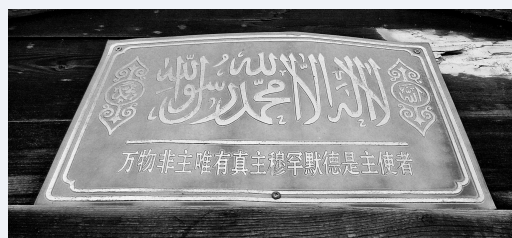 لا إله إلا الله محمد رسول الله
万物非主唯有真主穆罕默德是主使者